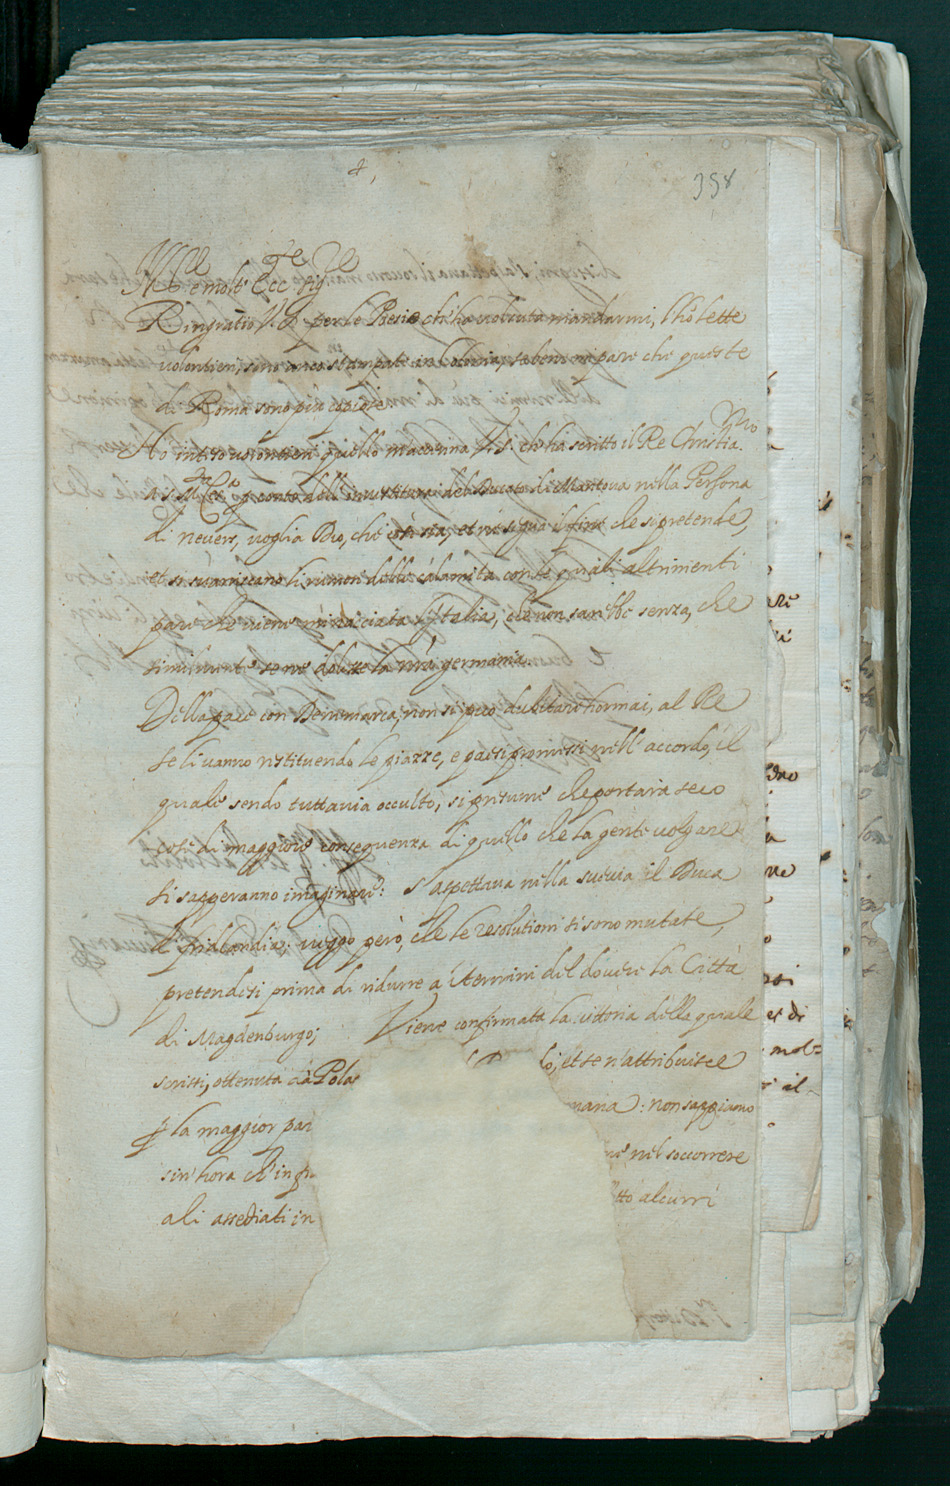 358
Mlle e molto Ecc.te Sig.re
Ringratio V.S. per le Poesie ch'ha voluto mandarmi, l'hò lette
volontieri, sono anco stampate in Colonia, sebene mi pare che queste
di Roma sono più copiose.
Ho inteso volontieri quello m'accenna V.S. che ha scritto il Re Christia.mo
a S. M.tà Ces.a conto dell'investitura del Ducato di Mantova nella Persona
di nevers, voglia Dio, che così sia, et ne segua il fine che si pretende,
et si svaniscano li rumori delle calamità con le quali altrimenti
pare che viene minacciata l'Italia, che non sarebbe senza, che
similmente se ne dolesse la n'ra germania.
Della pace con Denemarca, non si può dubitare hormai, al Re
se li vanno restituendo le piazze, e paesi promessi nell'accordo, il
quale sendo tuttavia occulto, si presume che portarà seco
cose di maggiore consequenza di quello che la gente volgare
si sapperanno imaginare: s'aspettava nella suevia il Duca
di fridlandia: veggo però, che le resolutioni si sono mutate,
pretendesi prima di ridurre a' termini del dovere la Città
di Magdenburgo; Viene confirmata la vittoria della quale
scrissi, ottenuta dà Pola lo, et se n'attribuisce
la maggior par mana: non sappiamo
sin'hora ch'in nel soccorrere
ali assediati in tto alcurri